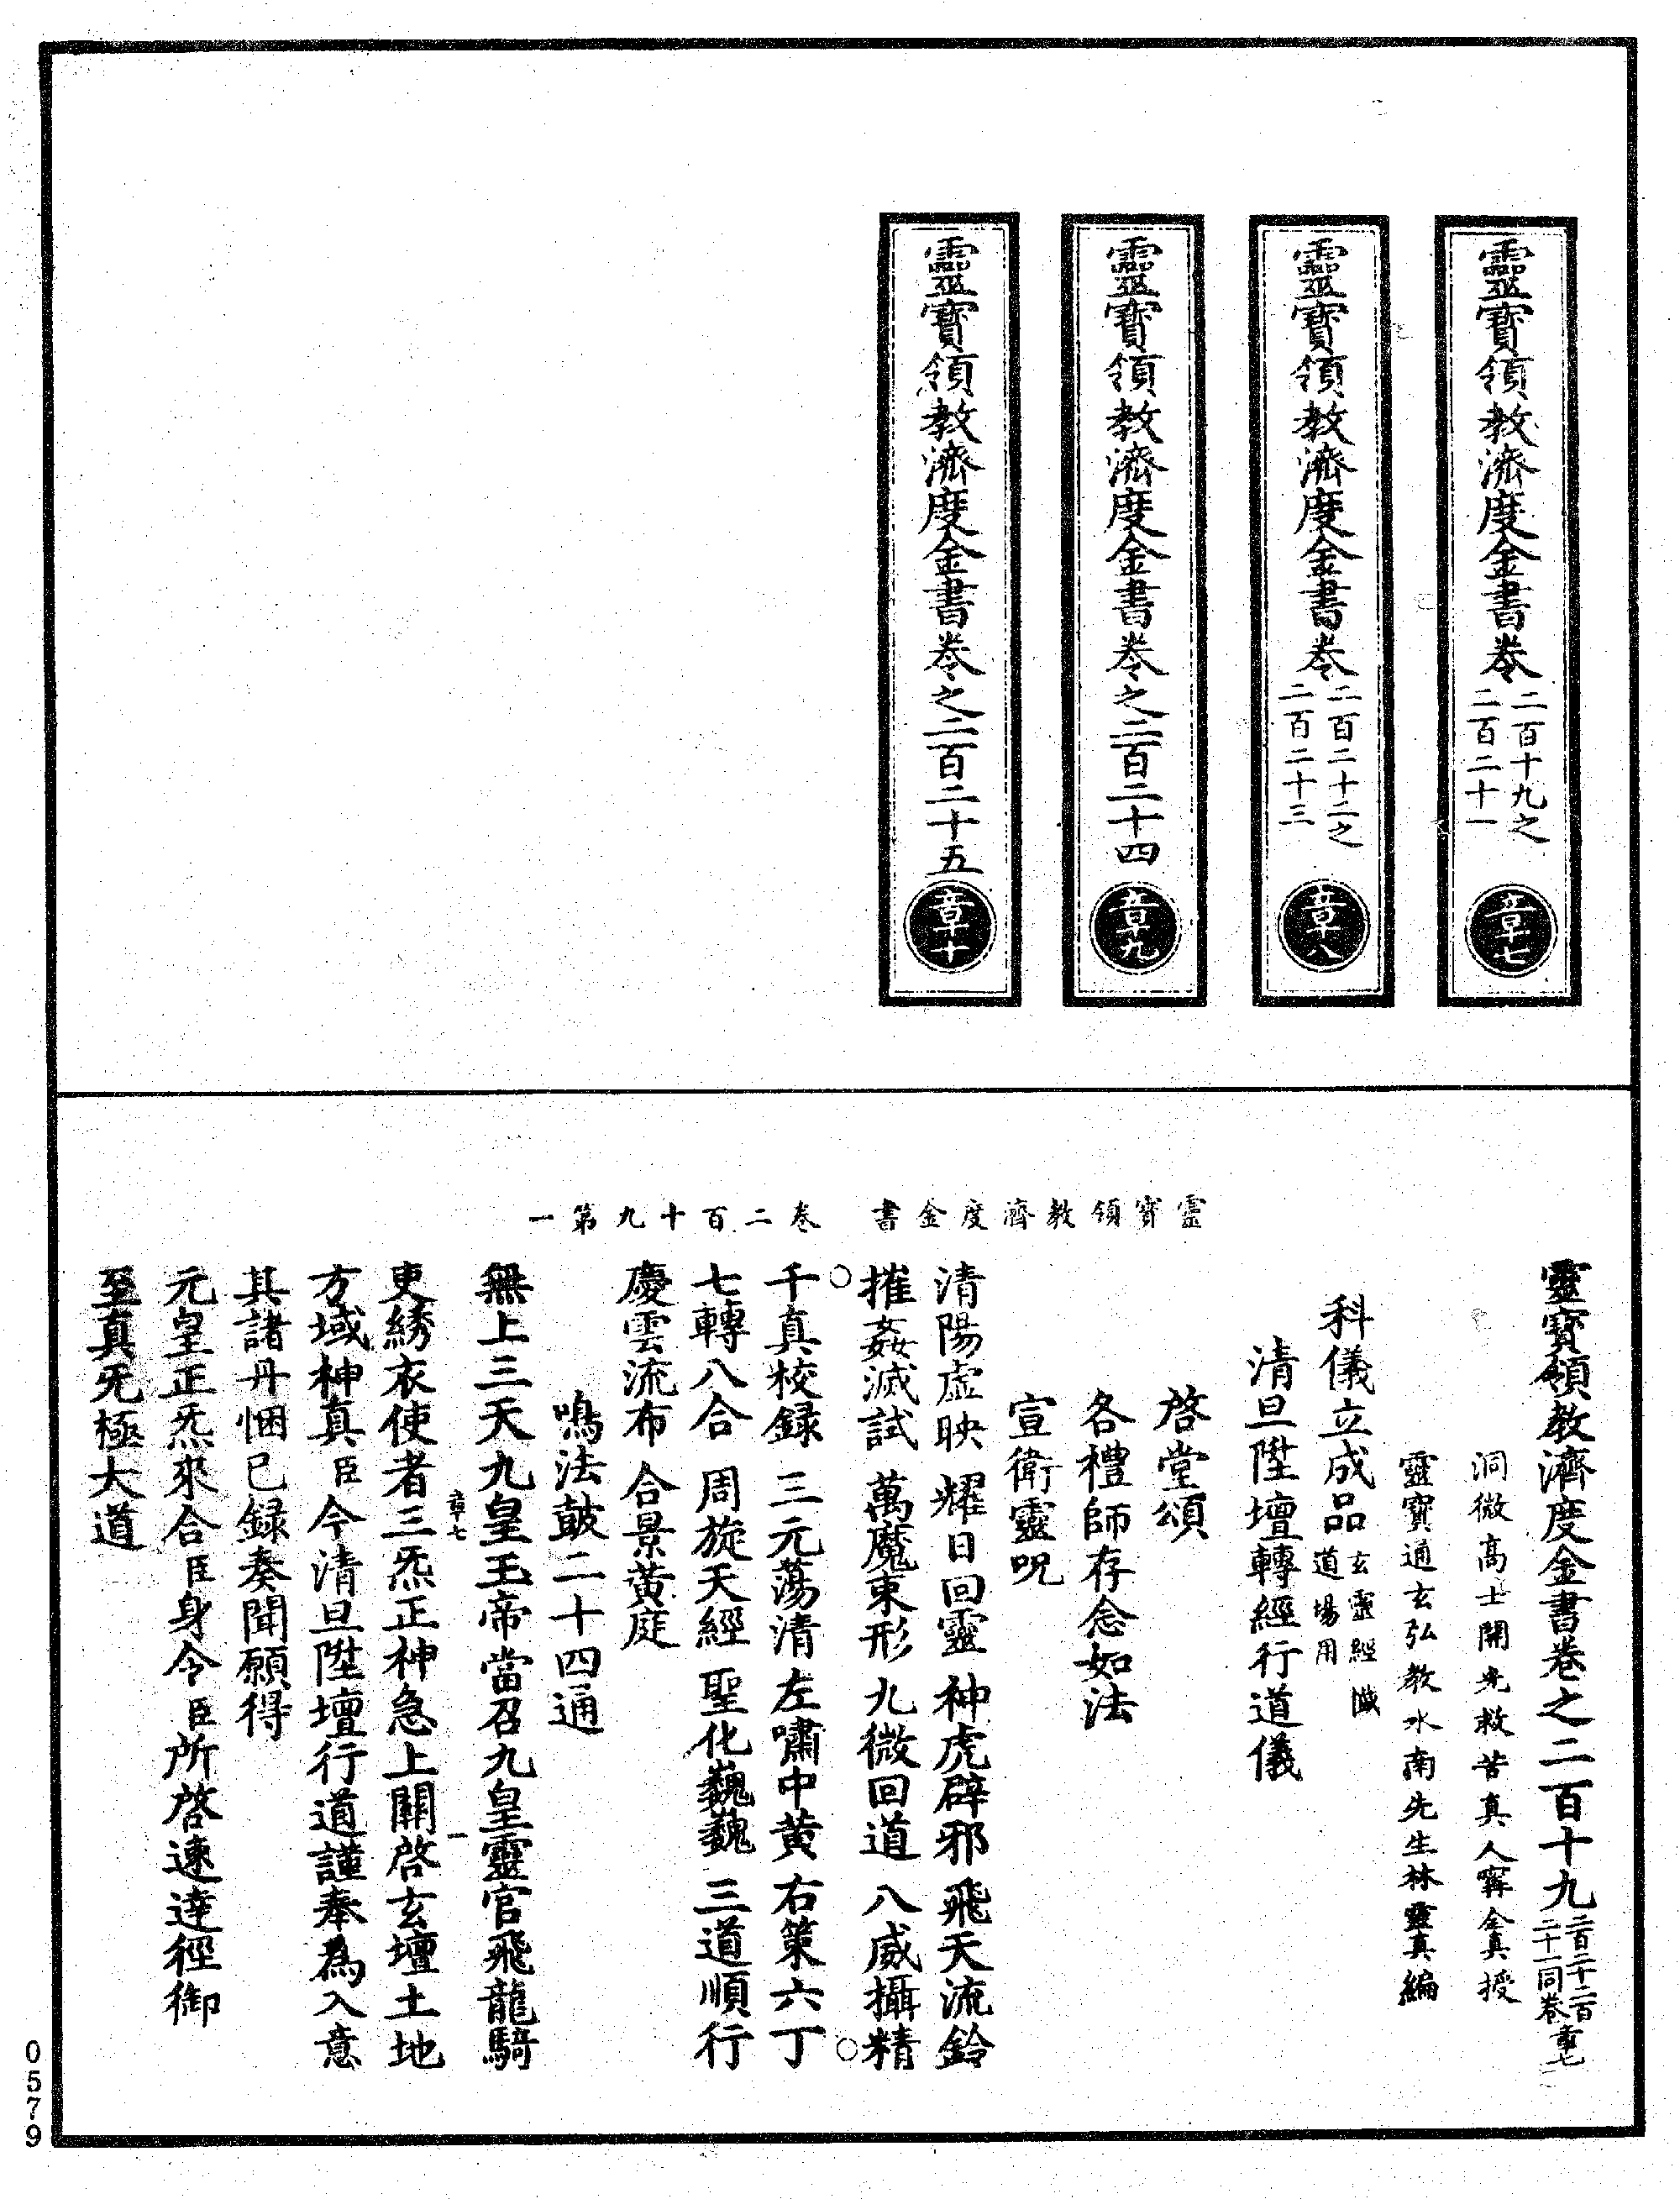 靈寶領教濟度金書卷二百十九之二百二十一 章七
靈寶領教濟度金書卷二百二十二之二百二十三 章八
靈寶領教濟度金書卷之二百二十四 章九
靈寶領教濟度金書卷之二百二十五 章十
靈寶領教濟度金書 卷二百十九第一
靈寶領教濟度金書卷之二百十九二百二十二百二十一同卷 章七
洞微高士開光救苦真人寗全真授
靈寶通玄弘教水南先生林靈真編
科儀立成品玄靈經懺道場用
清旦陞壇轉經行道儀
啓堂頌
各禮師存念如法
宣衛靈呪
清陽虛映 耀日回靈 神虎辟邪 飛天流鈴
摧姦滅試 萬魔束形 九微回道 八威攝精
千真校錄 三元蕩清 左嘯中黄 右策六丁
七轉八合 周旋天經 聖化巍巍 三道順行
慶雲流布 合景黃庭
鳴法鼓二十四通
無上三天九皇王帝當召九皇靈官飛龍騎
章七 一
吏綉衣使者三炁正神急上關啓玄壇土地
方域神真臣今清旦陞壇行道謹奉爲入意
其諸丹悃已録奏聞願得
元皇正炁來合臣身令臣所啓速達徑御
至真无極大道
0579